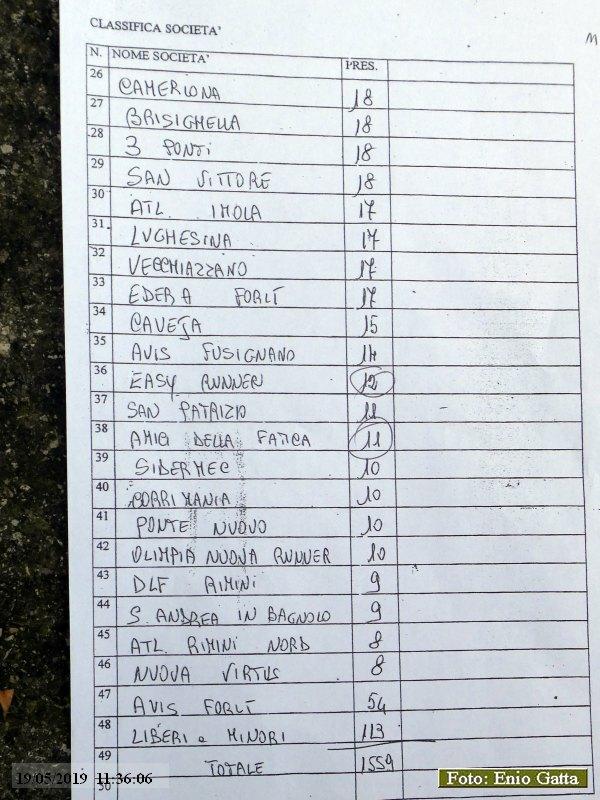 CLASSIFICA SOCIETA'
M
N. NOME SOCIETA' PRES.
26 CAMERLONA 18
27 BRISIGHELLA 18
28 3 PONTI 18
29 SAN VITTORE 18
30 ATL. IMOLA 17
31 LUGHESINA 17
32 VECCHIAZZANO 17
33 EDERA FORLÌ 17
34 CAVEJA 15
35 AVIS FUSIGNANO 14
36 EASY RUNNER 12
37 SAN PATRIZIO 11
38 AMICI DELLA FATICA 11
39 SIDERMEC 10
40 CORRIMANIA 10
41 PONTE NUOVO 10
42 OLIMPIA NUOVA RUNNER 10
43 DLF RIMINI 9
44 S. ANDREA IN BAGNOLO 9
45 ATL. RIMINI NORD 8
46 NUOVA VIRTUS 8
47 AVIS FORLÌ 54
48 LIBERI e MINORI 113
49 TOTALE 1559
50
19/05/2019 11:36:06
Foto: Enio Gatta